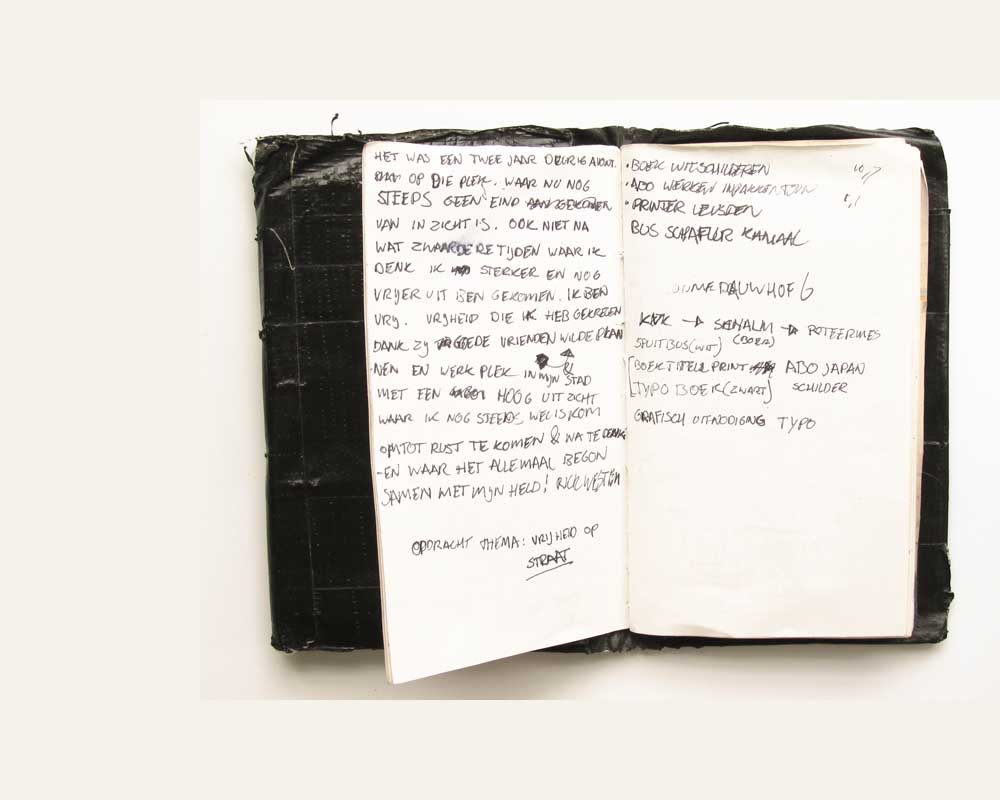 HET WAS EEN TWEE JAAR DEURIG AVONT.
DAT OP DIE PLEK. WAAR NU NOG
STEEDS GEEN EIND AAN GEKOMEN
VAN IN ZICHT IS. OOK NIET NA
WAT ZWAARDERE TIJDEN WAAR IK
DENK IK STERKER EN NOG
VRYER UIT BEN GEKOMEN. IK BEN
VRY. VRYHEID DIE IK HEB GEKREGEN
DANK ZY GOEDE VRIENDEN WILDE PLAN
NEN EN WERK PLEK IN MIJN STAD
MET EEN HOOG UIT ZICHT
WAAR IK NOG STEEDS WELISKOM
OM TOT RUST TE KOMEN & NA TE DENKE
-EN WAAR HET ALLEMAAL BEGON
SAMEN MET MIJN HELD!
OPDRACHT THEMA: VRIJHEID OP
STRAAT
·BOEK WITSCHILDEREN
·ABO WERKEN INPAKKEN
·PRINTER LEUSDEN
BUS KANAAL
DAUWHOF 6
KVK → →
SPUITBUS(WIT) (BOER)
[BOEKTITELL PRINT ABO JAPAN
[TYPO BOEK(ZWART)] SCHILDER
GRAFISCH UITNODIGING TYPO